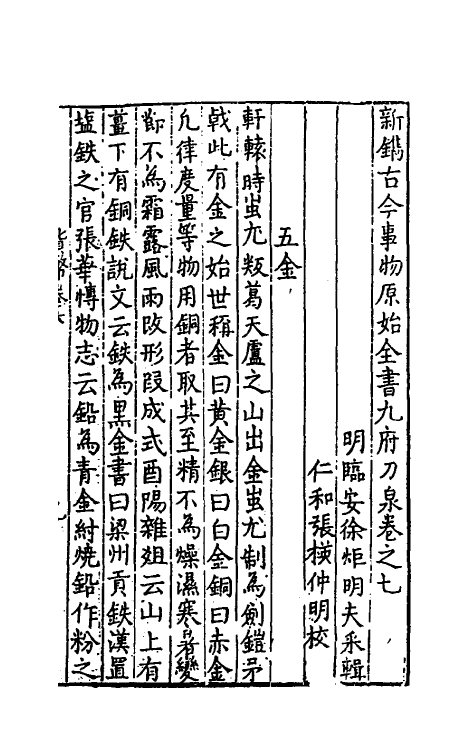 新鐫古今事物原始全書九府刀泉卷之七
明臨安徐炬明夫采輯
仁和張橫仲明校
五金
軒轅時蚩尤叛葛天盧之山出金蚩尤制為劍鎧矛
戟此有金之始世稱金曰黃金銀曰白金銅曰赤金
凢律度量等物用銅者取其至精不為燥濕寒暑變
節不為霜露風雨改形段成式酉陽雜俎云山上有
薑下有銅鉄説文云鉄為黑金書曰梁州貢鉄漢置
塩鉄之官張華博物志云鉛為青金紂燒鉛作粉之